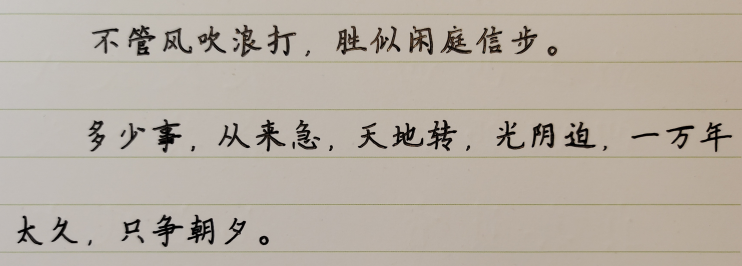 不管风吹浪打，胜似闲庭信步。
多少事，从来急，天地转，光阴迫，一万年
太久，只争朝夕。